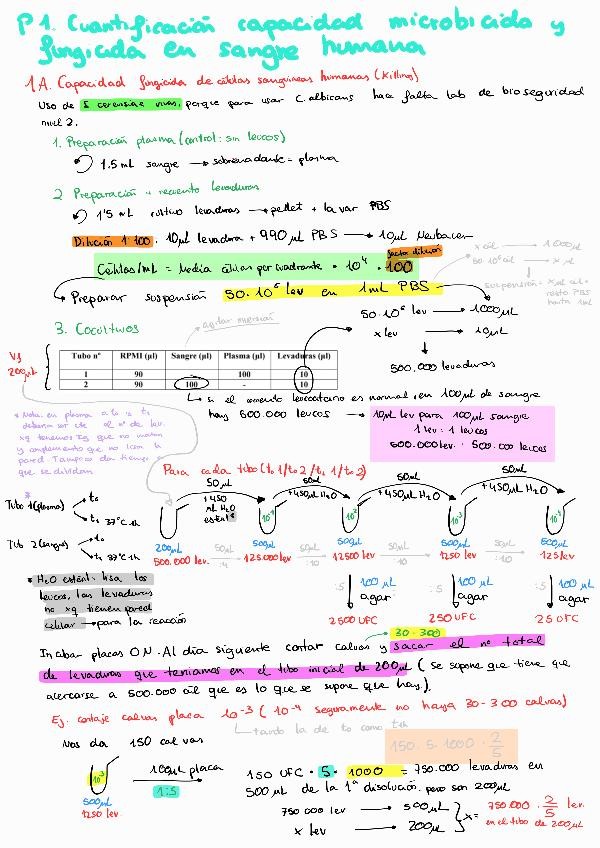 P1. Cuantificación capacidad microbicida y
fungicida en sangre humana
1A. Capacidad fungicida de células sanguíneas humanas (Killing)
Uso de S cerevisiae vivas, porque para usar C. albicans hace falta lab de bioseguridad
nivel 2.
1. Preparación plasma (control: sin leucos)
1.5 mL sangre → sobrenadante = plasma
2. Preparación + recuento levaduras
1'5 mL cultivo levaduras → pellet + lavar PBS
Dilución 1:100. 10µL levadura + 990 µL PBS → 10µL Neubauer
factor dilución
Células/mL = Media células por cuadrante · 10⁴ · 100
x cél → 1000µL
50·10⁶ cél → x µL
suspensión = x µL cél +
resto PBS
hasta 1mL
Preparar suspensión 50·10⁶ lev en 1mL PBS
50·10⁶ lev → 1000µL
x lev → 10µL
500.000 levaduras
3. Cocultivos
agitar inversión
Vf
200µL
Tubo nº RPMI (µl) Sangre (µl) Plasma (µl) Levaduras (µl)
1 90 - 100 10
2 90 100 - 10
si el recuento leucocitario es normal, en 100µL de sangre
hay 500.000 leucos → 10µL lev para 100µL sangre
1 lev : 1 leucos
500.000 lev : 500.000 leucos
* Nota: en plasma a t₀ y t₁
debería ser cte el nº de lev.
xq tenemos Ig que no matan
y complemento que no lisa la
pared. Tampoco da tiempo a
que se dividan
Para cada tubo (t₀ 1 / t₀ 2 / t₁ 1 / t₁ 2)
50µL 50µL 50µL 50µL
+450 mL H₂O estéril* +450µL H₂O +450µL H₂O +450µL H₂O
*
Tubo 1 (plasma) t₀
t₁ 37ºC 1h
Tubo 2 (sangre) t₀
t₁ 37ºC 1h
10⁻¹ 10⁻² 10⁻³ 10⁻⁴
200µL 500µL 500µL 500µL 500µL
500.000 lev 50µL :10 125.000 lev 50µL :10 12500 lev 50µL :10 1250 lev 50µL :10 125 lev
* H₂O estéril: lisa los
leucos, las levaduras
no xq tienen pared
celular → para la reacción
:5 100 µL agar :5 100 µL agar :5 100 µL agar
2500 UFC 250 UFC 25 UFC
30-300
Incubar placas O.N. Al día siguiente contar calvas y sacar el nº total
de levaduras que teníamos en el tubo inicial de 200µL (se supone que tiene que
acercarse a 500.000 cél que es lo que se supone que hay).
Ej. contaje calvas placa 10⁻³ (10⁻⁴ seguramente no haya 30-300 calvas)
tanto la de t₀ como t₁h
150 · 5 · 1000 · 2/5
Nos da 150 calvas
10⁻³
500µL
1250 lev
100µL placa
1:5
150 UFC · 5 · 1000 = 750.000 levaduras en
500 µL de la 1ª disolución, pero son 200µL
750 000 lev → 500µL
x lev → 200µL
x = 750.000 · 2/5 lev.
en el tubo de 200µL